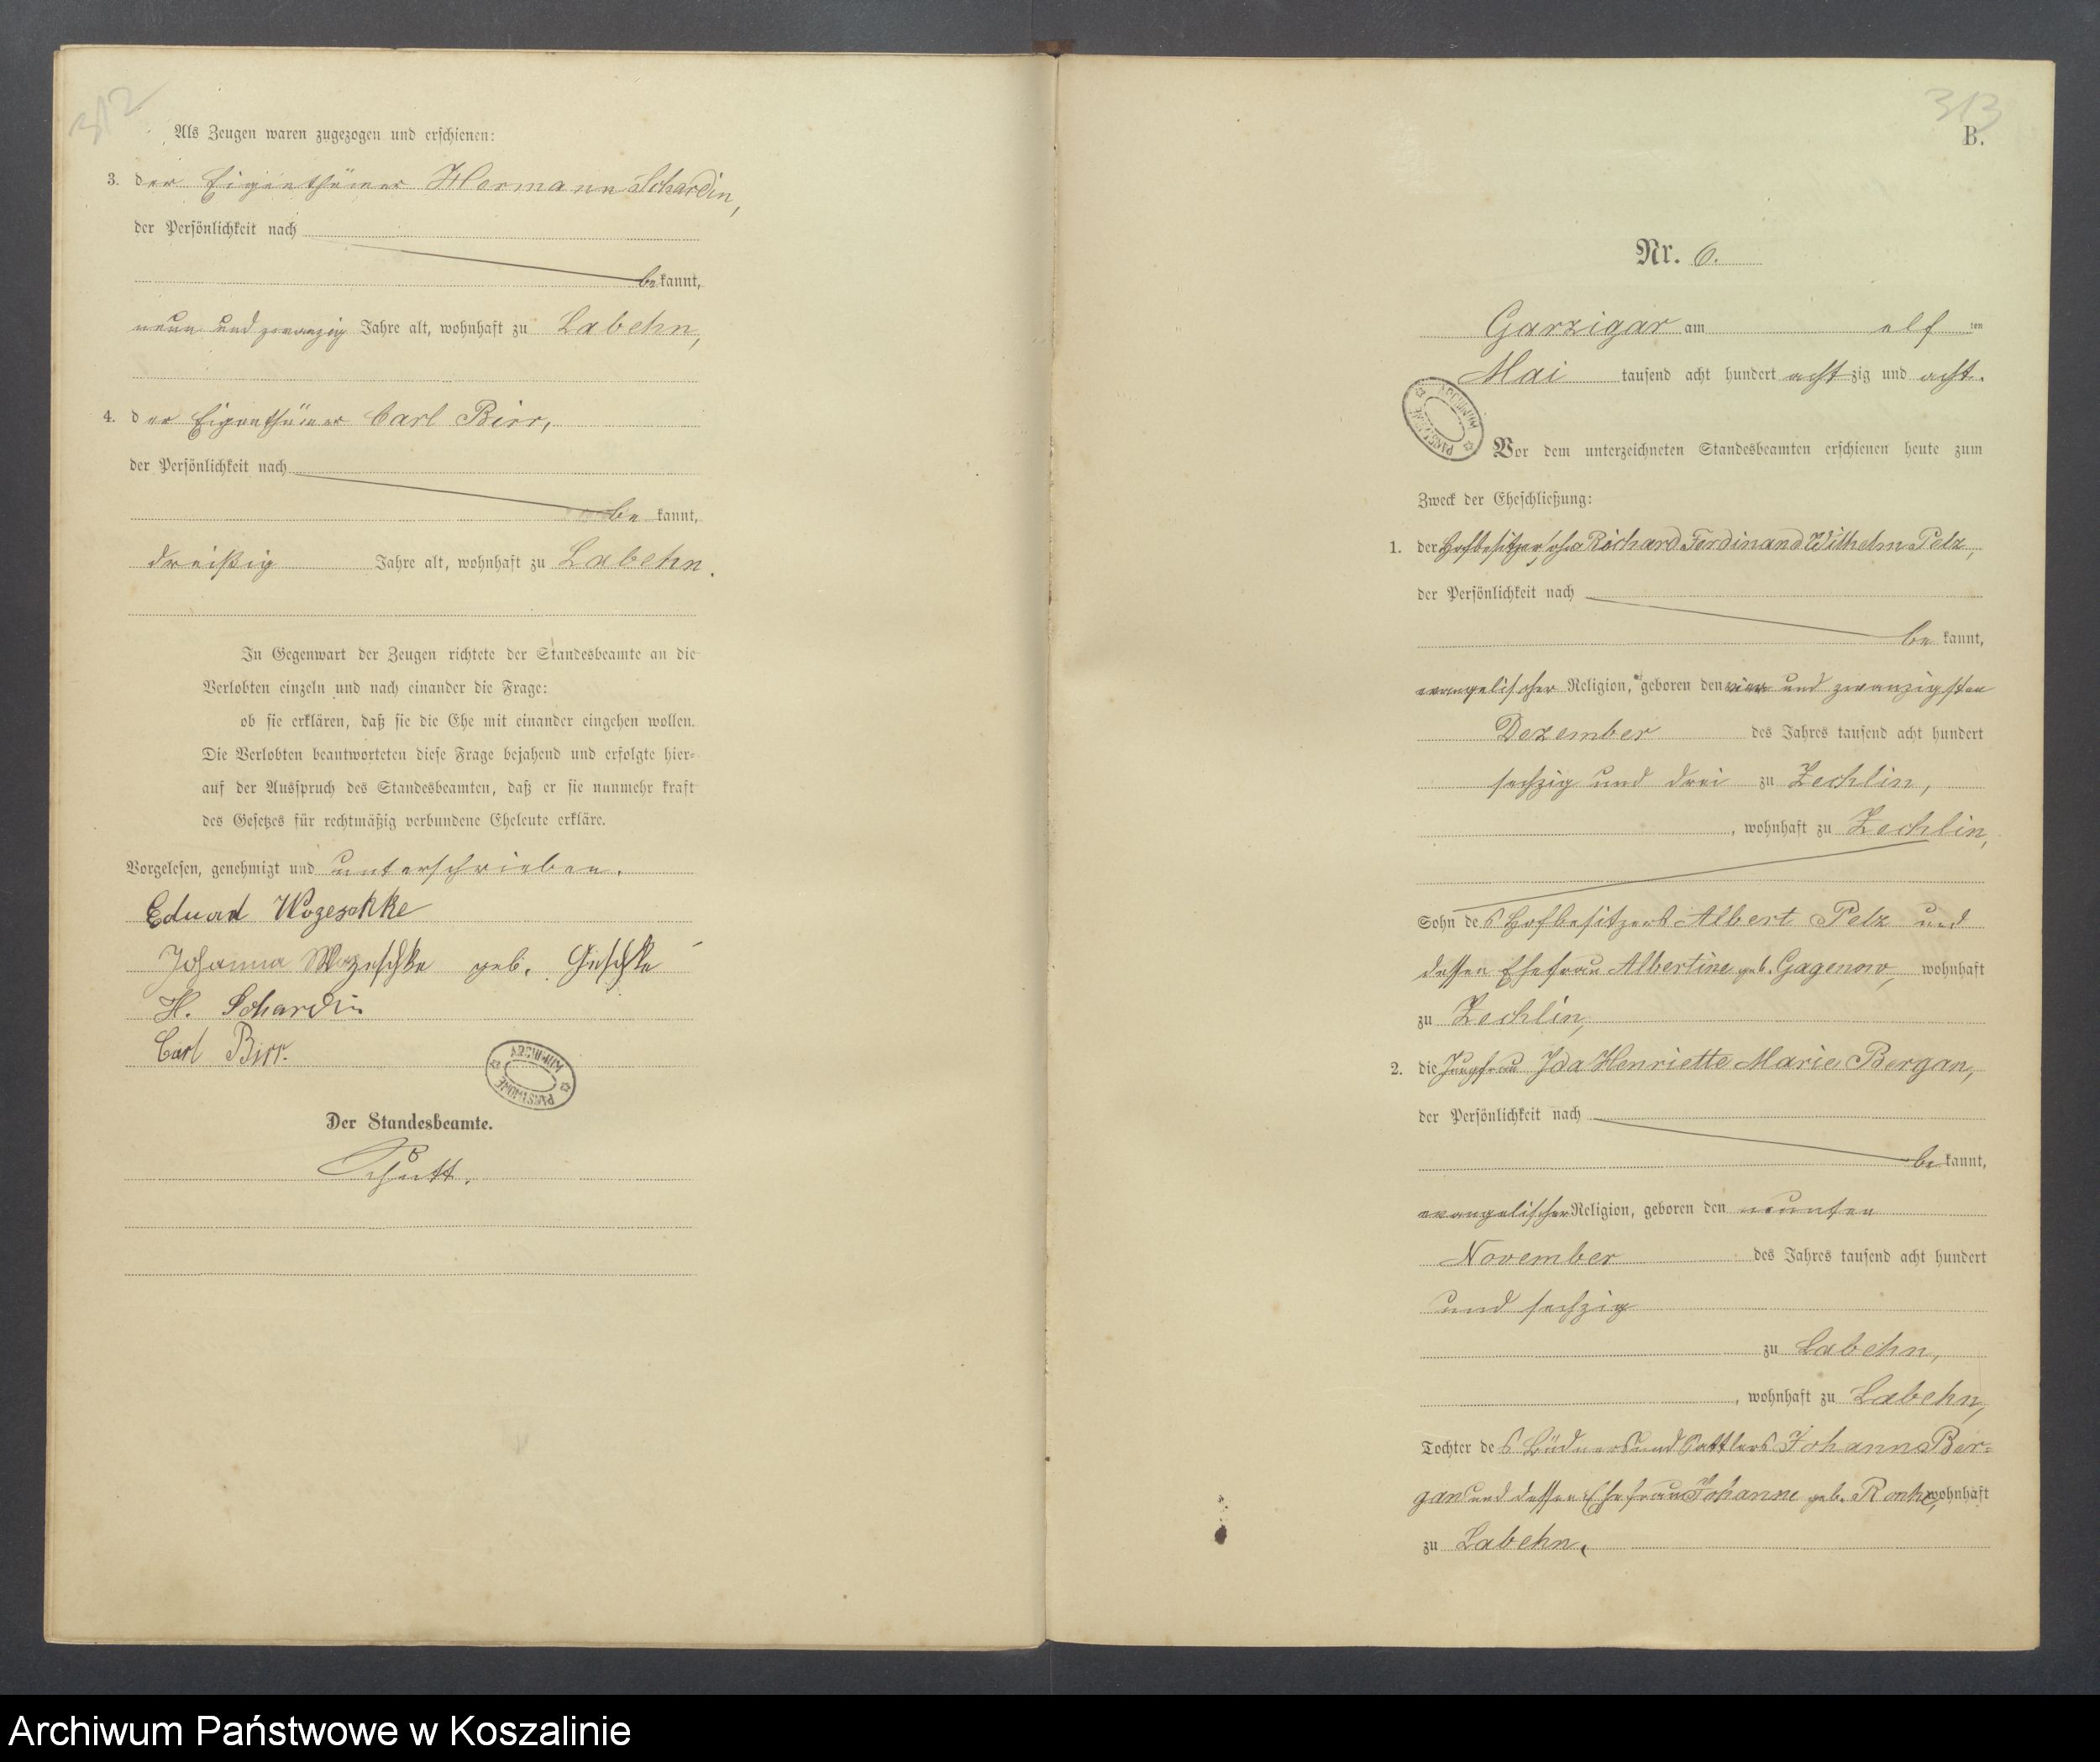 312
Als Zeugen waren zugezogen und erschienen:
3. der Eigenthümer Hermann Schardin,
der Persönlichkeit nach
be kannt,
neun und zwanzig Jahre alt, wohnhaft zu Labehn,
4. der Eigenthümer Carl Birr,
der Persönlichkeit nach
be kannt,
dreißig Jahre alt, wohnhaft zu Labehn.
In Gegenwart der Zeugen richtete der Standesbeamte an die
Verlobten einzeln und nach einander die Frage:
ob sie erklären, daß sie die Ehe mit einander eingehen wollen.
Die Verlobten beantworteten diese Frage bejahend und erfolgte hier-
auf der Ausspruch des Standesbeamten, daß er sie nunmehr kraft
des Gesetzes für rechtmäßig verbundene Eheleute erkläre.
Vorgelesen, genehmigt und unterschrieben.
Eduard Wozeschke
Johanna Wozeschke geb. Geschke
H. Schardin
Carl Birr.
ARCHIWUM PAŃSTWOWE
Der Standesbeamte.
Schütt.
313
B.
Nr. 6.
Garzigar am elf ten
Mai tausend acht hundert acht zig und acht.
ARCHIWUM PAŃSTWOWE
Vor dem unterzeichneten Standesbeamten erschienen heute zum
Zweck der Eheschließung:
1. der Hofbesitzersohn Richard Ferdinand Wilhelm Pelz,
der Persönlichkeit nach
be kannt,
evangelischer Religion, geboren den vier und zwanzigsten
Dezember des Jahres tausend acht hundert
sechzig und drei zu Zechlin,
, wohnhaft zu Zechlin,
Sohn des Hofbesitzers Albert Pelz und
dessen Ehefrau Albertine geb. Gagenow, wohnhaft
zu Zechlin,
2. die Jungfrau Ida Henriette Marie Bergan,
der Persönlichkeit nach
be kannt,
evangelischer Religion, geboren den neunten
November des Jahres tausend acht hundert
und sechzig
zu Labehn,
, wohnhaft zu Labehn,
Tochter des Büdners und Sattlers Johann Ber=
gan und dessen Ehefrau Johanne geb. wohnhaft
zu Labehn.
Archiwum Państwowe w Koszalinie